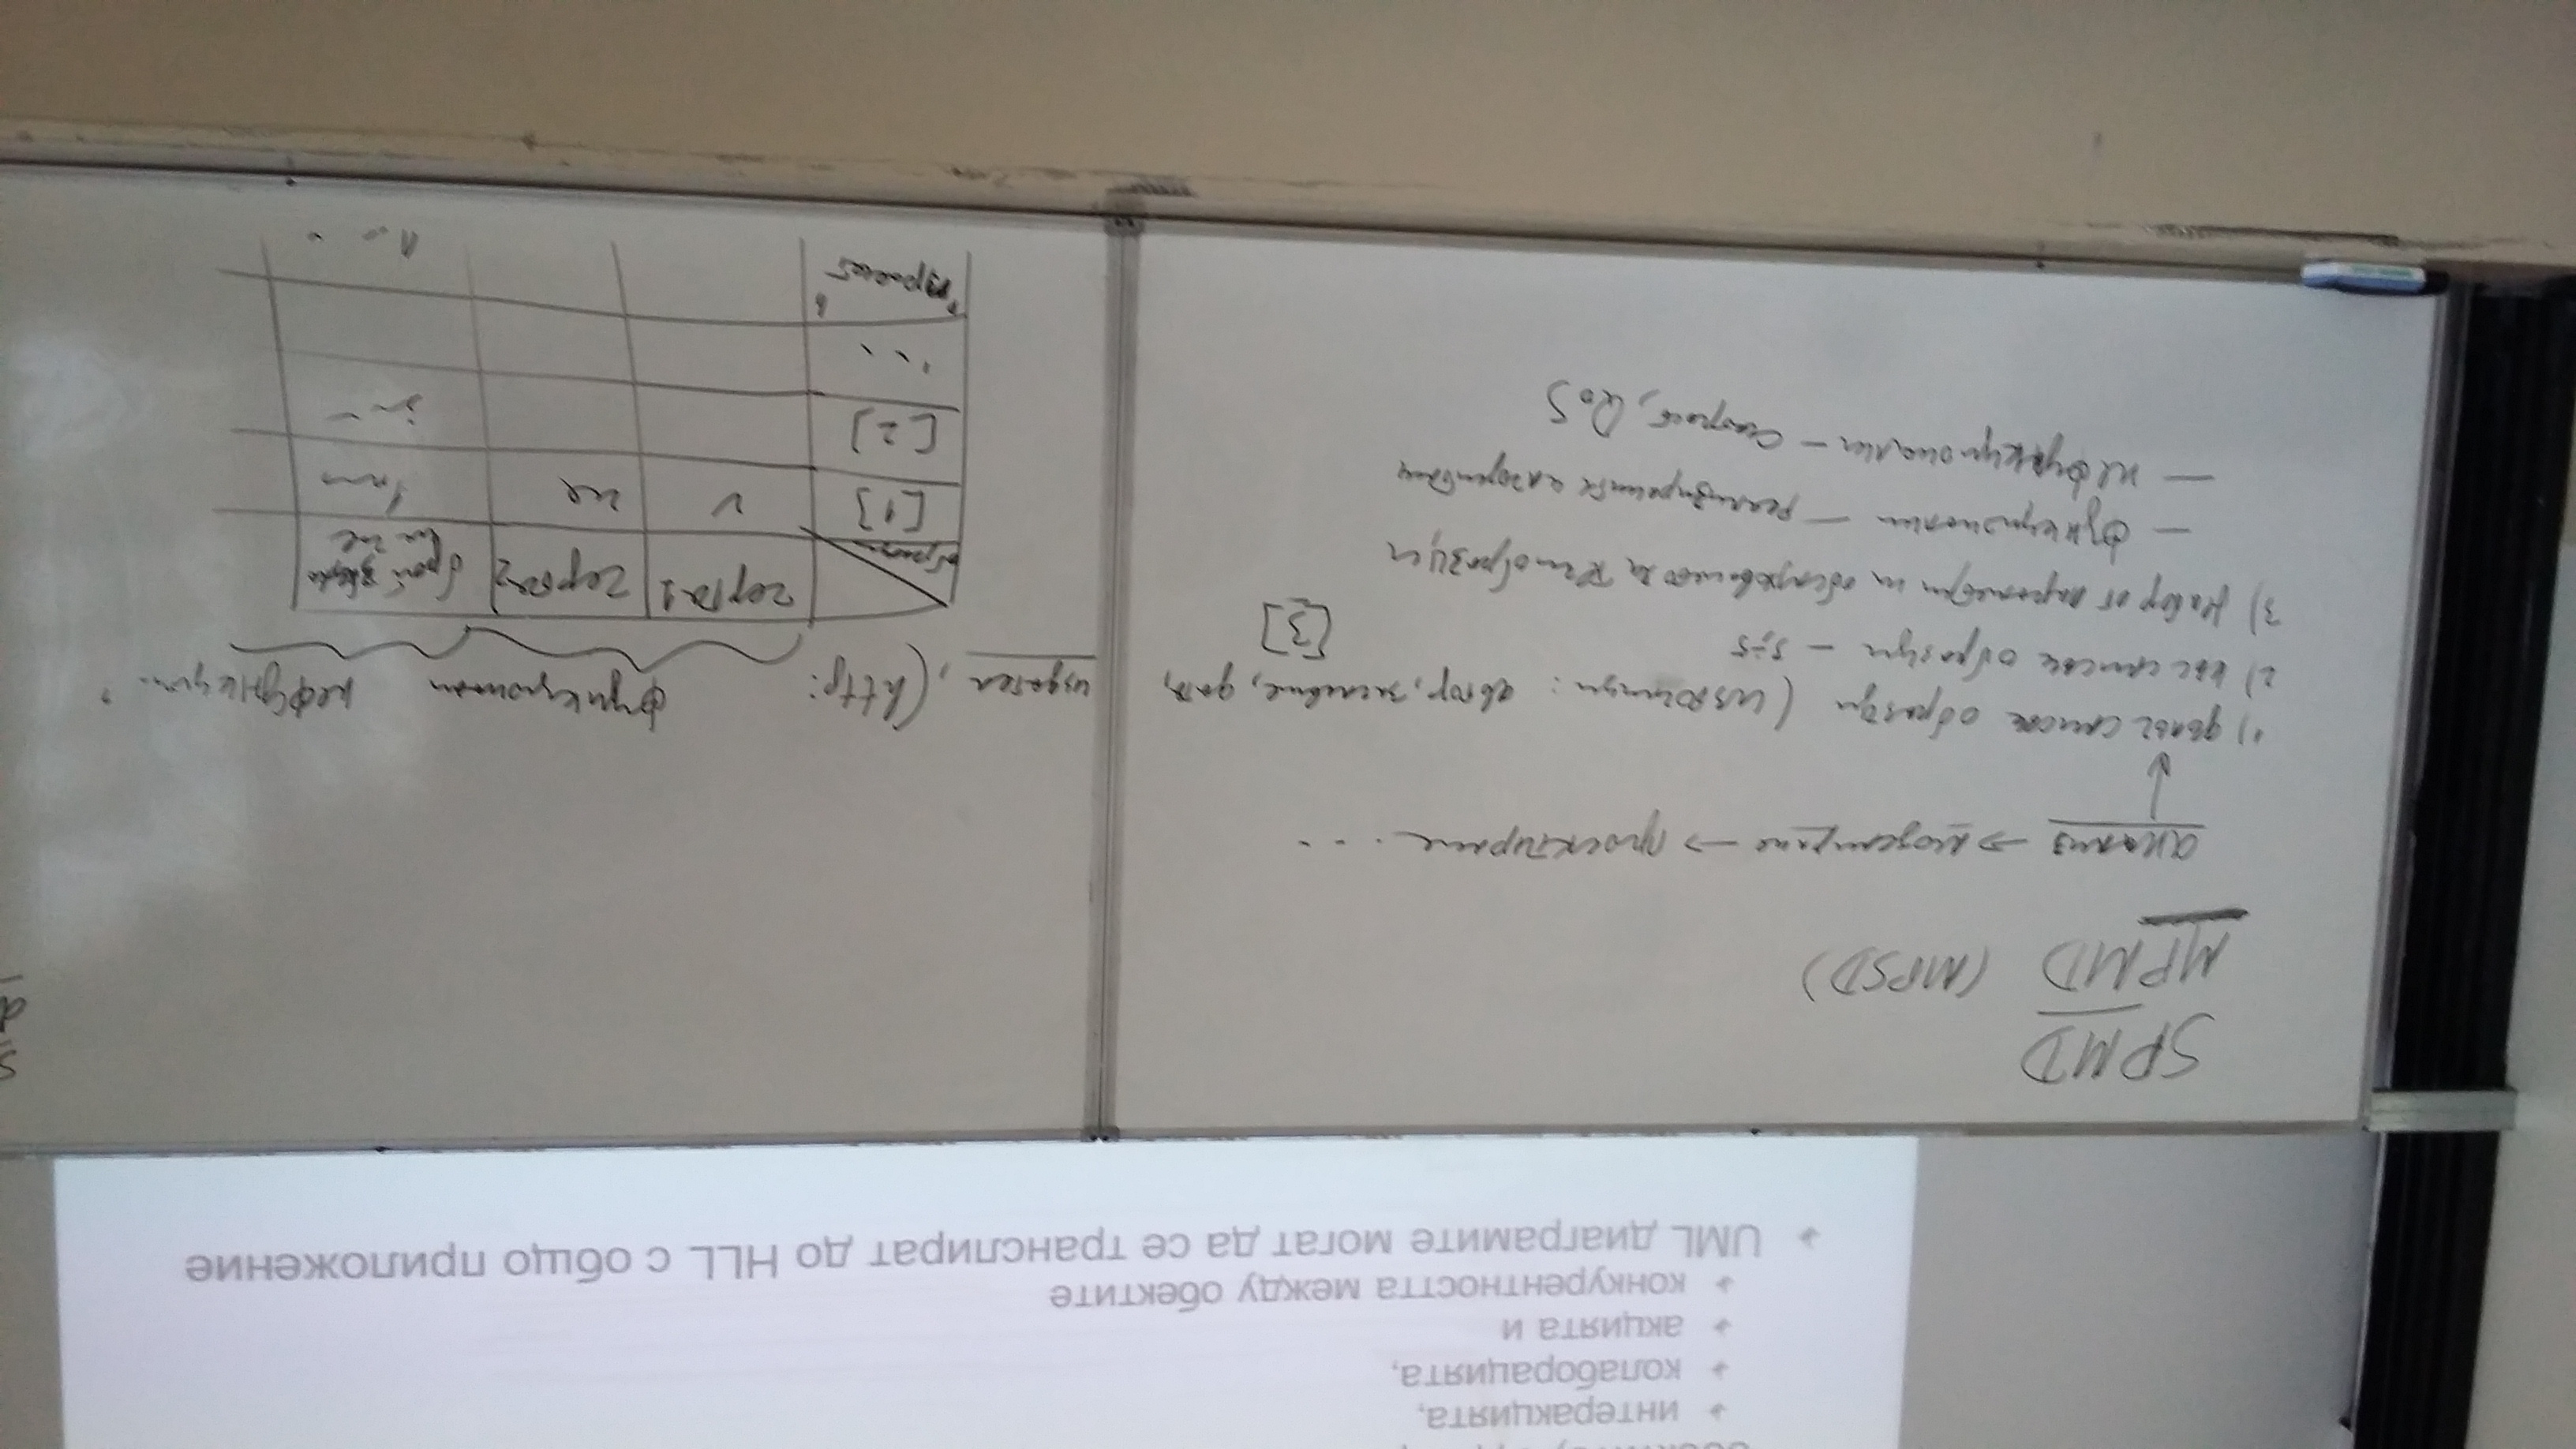 интеракцията,
колаборацията,
акцията и
конкурентността между обектите
UML диаграмите могат да се транслират до HLL с общо приложение
SPMD
MPMD (MPSD)
анализ → моделиране → проектиране . . .
1) дълъг списък образци (източници: автор, заглавие, дата, издател, (http:
2) къс списък образци – 3÷5
[3]
3) Набор от параметри на обслужването на тези образци
— функционални — реализираните алгоритми
— нефункционални – скорост, QoS
функционални нефункцион.
образци
черта1
черта2
брой
[1]
v
не
1
[2]
...
"проект"